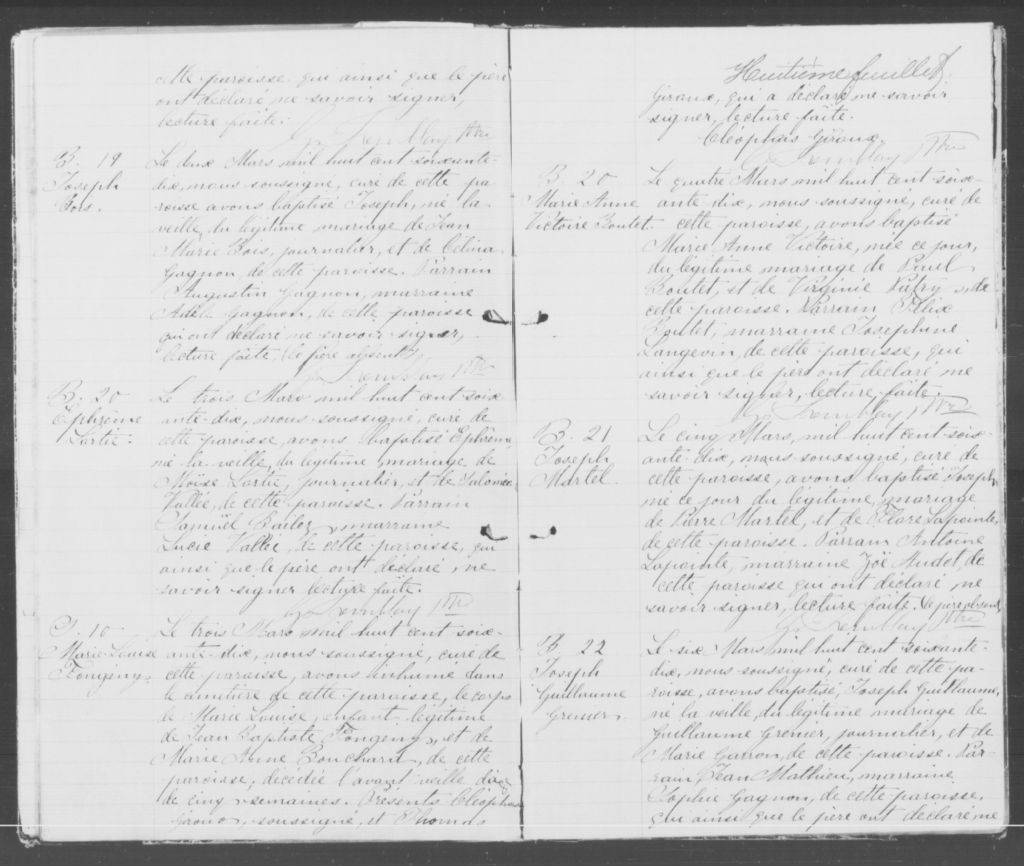 cette paroisse qui ainsi que le père
ont déclaré ne savoir signer,
lecture faite.
Tremblay Ptre
B. 19
Joseph
Bois.
Le deux Mars mil huit cent soixante-
dix, nous soussigné, curé de cette pa-
roisse avons baptisé Joseph, né la
veille, du légitime mariage de Jean
Marie Bois, journalier, et de Célina
Gagnon, de cette paroisse. Parrain
Augustin Gagnon, marraine
Adél. Gagnon, de cette paroisse
qui ont déclaré ne savoir signer,
lecture faite. le père absent
Tremblay Ptre
B. 20
Ephrème
Lortie.
Le trois Mars mil huit cent soix-
ante-dix, nous soussigné, curé de
cette paroisse, avons baptisé Ephrème,
né la veille, du légitime mariage de
Moïse Lortie, journalier, et de Salomée
Vallée, de cette paroisse. Parrain
Samuël, marraine
Lucie Vallée, de cette paroisse, qui
ainsi que le père ont déclaré, ne
savoir signer lecture faite.
Tremblay Ptre
S. 10
Marie Louise
Fongeny.
Le trois Mars mil huit cent soix-
ante-dix, nous soussigné, curé de
cette paroisse, avons inhumé dans
le cimetière de cette paroisse, le corps
de Marie Louise, enfant légitime
de Jean Baptiste Fongeny, et de
Marie Anne Bouchard, de cette
paroisse, décédée l'avant veille âgée
de cinq semaines. Présents Cléophas
Giroux, soussigné, et Thomas
Huitième feuillet
Giroux, qui a déclaré ne savoir
signer, lecture faite.
Cléophas Giroux
Tremblay Ptre
B. 20
Marie Anne
Victoire Boutet.
Le quatre Mars mil huit cent soix-
ante-dix, nous soussigné, curé de
cette paroisse, avons baptisé
Marie Anne Victoire, née ce jour,
du légitime mariage de Paul
Boutet, et de Virginie Patry de
cette paroisse. Parrain Félix
Boutet, marraine Josephine
Langevin, de cette paroisse, qui
ainsi que le père ont déclaré ne
savoir signer, lecture faite.
Tremblay Ptre
B. 21
Joseph
Martel.
Le cinq Mars, mil huit cent soix-
ante-dix, nous soussigné, curé de
cette paroisse, avons baptisé Joseph,
né ce jour du légitime mariage
de Pierre Martel, et de Flore Lapointe,
de cette paroisse. Parrain Antoine
Lapointe, marraine Zoë Audet, de
cette paroisse qui ont déclaré ne
savoir signer, lecture faite. le père absent
Tremblay Ptre
B. 22
Joseph
Guillaume
Grenier.
Le six Mars mil huit cent soixante-
dix, nous soussigné, curé de cette pa-
roisse, avons baptisé, Joseph Guillaume,
né la veille, du légitime mariage de
Guillaume Grenier, journalier, et de
Marie Garron, de cette paroisse. Par-
rain Jean Mathieu, marraine
Sophie Gagnon, de cette paroisse,
qui ainsi que le père ont déclaré ne